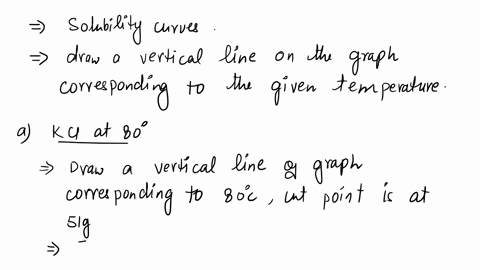 ⇒ Solubility curves.
⇒ draw a vertical line on the graph
corresponding to the given temperature.
a) KCl at 80°
⇒ Draw a vertical line of graph
corresponding to 80°c, cut point is at
51g
⇒